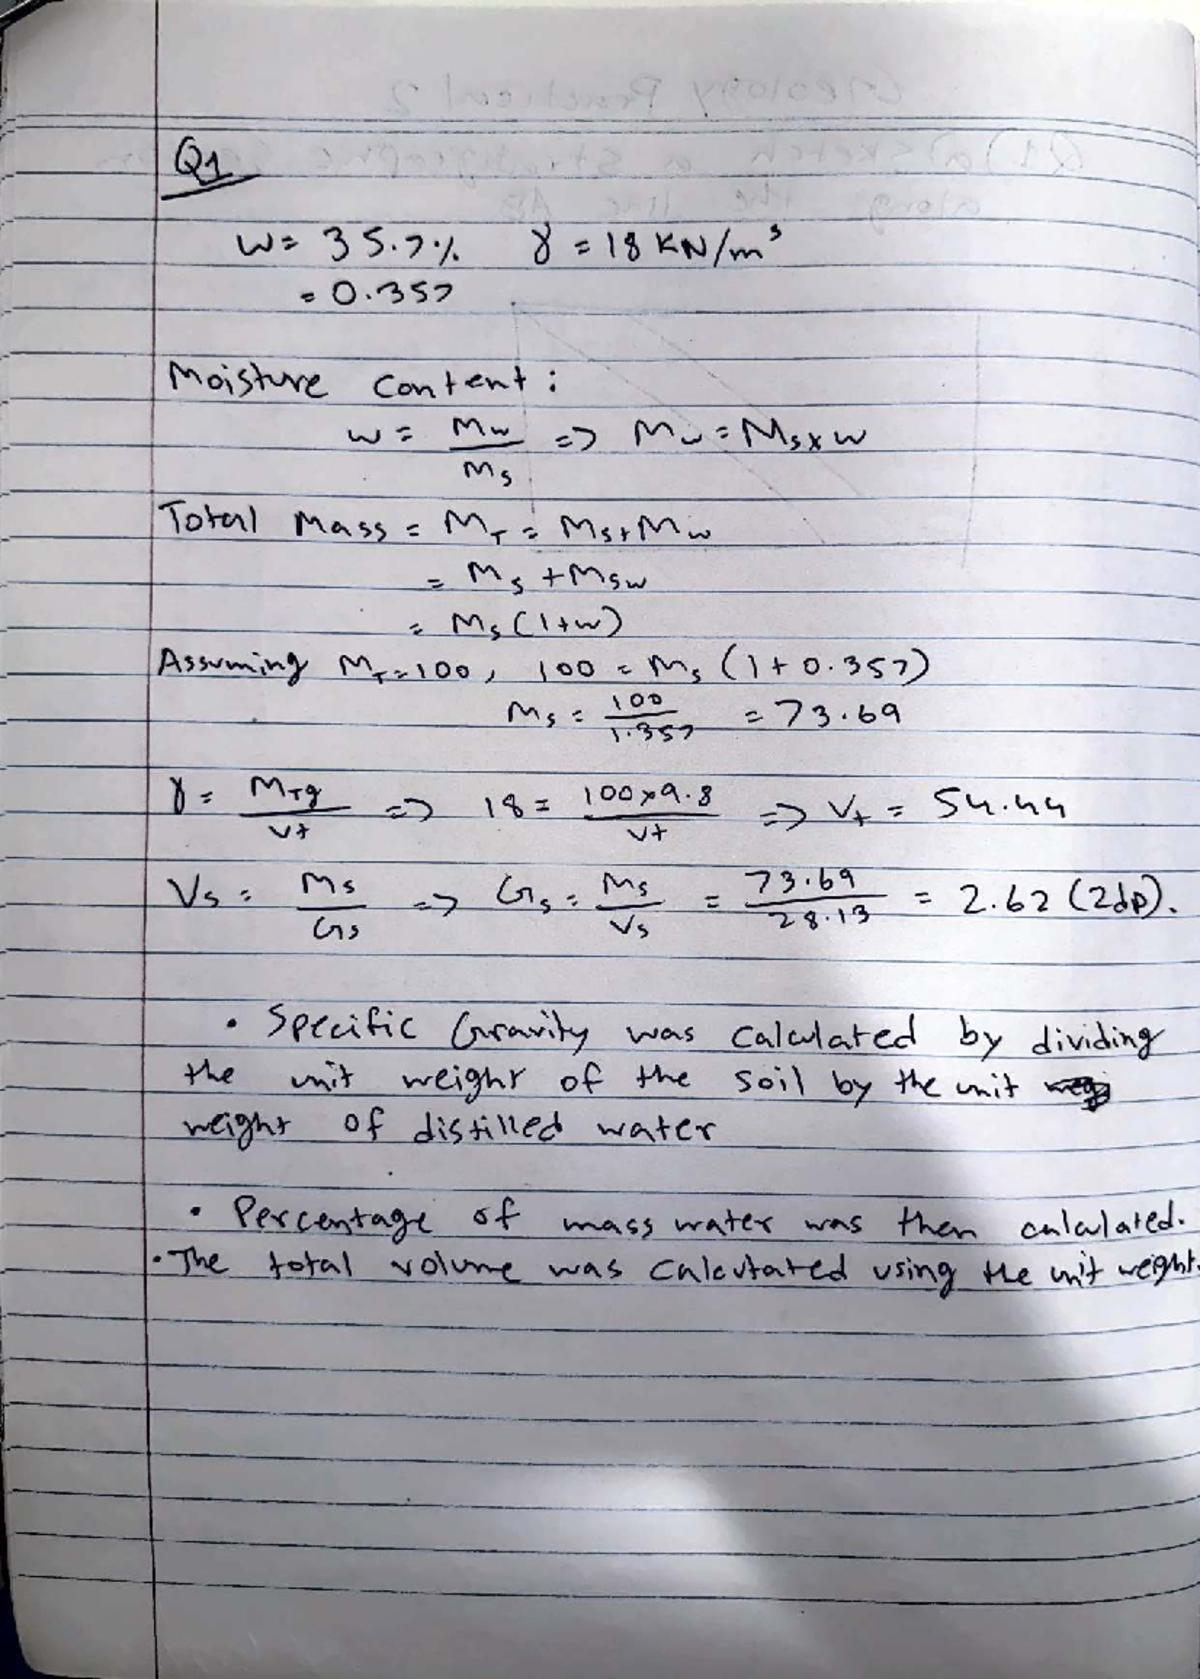 Q1
w = 35.7% γ = 18 KN/m³
= 0.357
Moisture Content :
w = Mw/Ms => Mw = Ms x w
Total Mass = MT = Ms + Mw
= Ms + Msw
= Ms (1+w)
Assuming MT = 100, 100 = Ms (1 + 0.357)
Ms = 100/1.357 = 73.69
γ = MTg/Vt => 18 = 100x9.8/Vt => Vt = 54.44
Vs = Ms/Gs => Gs = Ms/Vs = 73.69/28.13 = 2.62 (2dp).
• Specific Gravity was calculated by dividing
the unit weight of the soil by the unit
weight of distilled water
• Percentage of mass water was then calculated.
• The total volume was calculated using the unit weight.